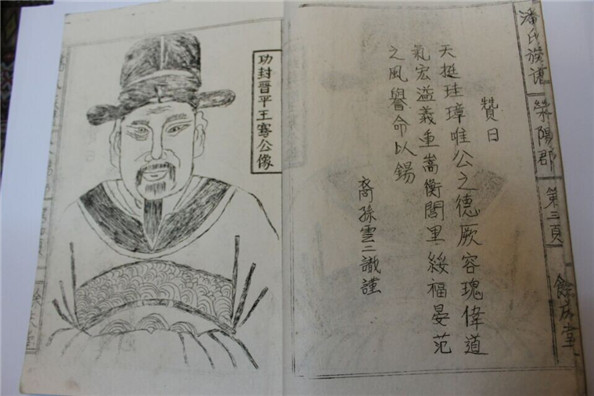 潘氏族譜
滎陽郡
第三頁
贊曰
天挺珪璋唯公之德厥容瑰偉道
氣宏溢義重嵩衡閭里綏福晏范
之風譽命以錫
裔孫雲二識謹
功封晉平王騫公像